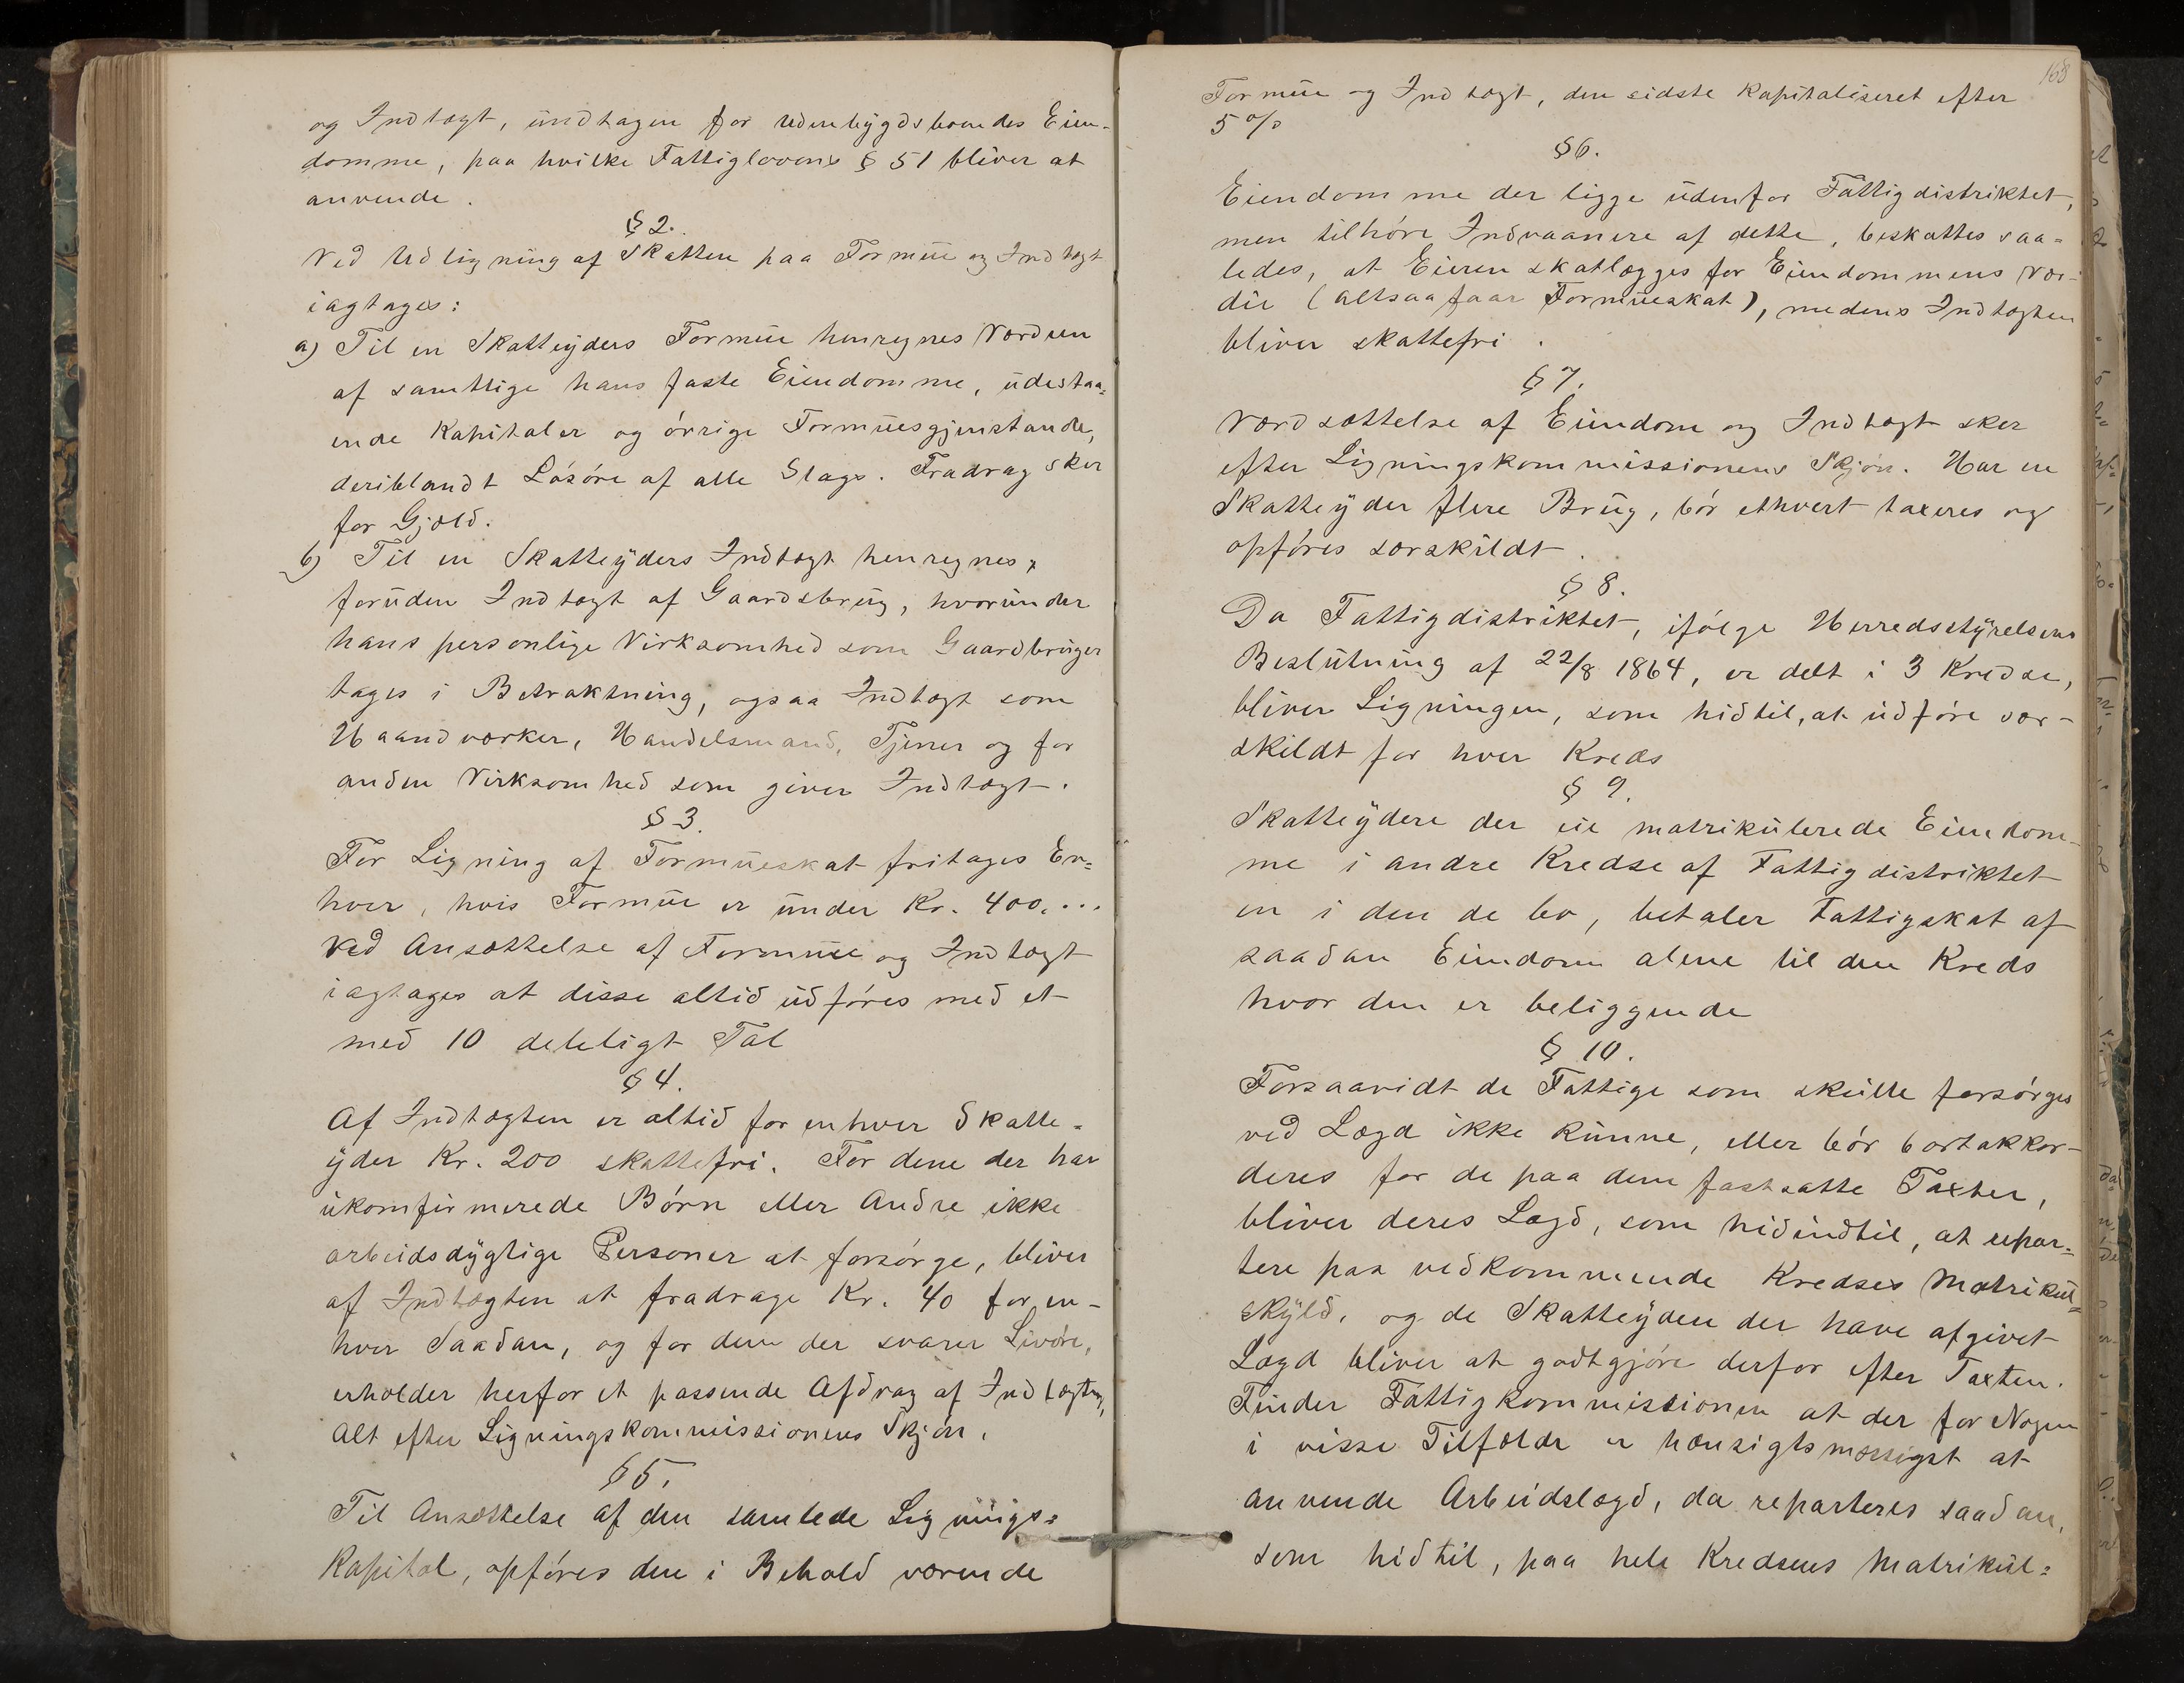 og Indtægt, undtagen for Udenbygdsboendes Eien-
domme, paa hvilke Fattiglovens § 51 bliver at
anvende.
§ 2.
Ved Udligning af Skatten paa Formue og Indtægt
iagtages:
a) Til en Skatteyders Formue henregnes Værdien
af samtlige hans faste Eiendomme, udestaa=
ende Kapitaler og øvrige Formuesgjenstande,
deriblandt Løsøre af alle Slags. Fradrag sker
for Gjæld.
b) Til en Skatteyders Indtægt henregnes,
foruden Indtægt af Gaardsbrug, hvorunder
hans personlige Virksomhed som Gaardbruger
tages i Betraktning, ogsaa Indtægt som
Haandværker, Handelsmand, Tjener og for
anden Virksomhed som giver Indtægt.
§ 3.
For Ligning af Formueskat fritages En=
hver, hvis Formue er under Kr. 400. ...
Ved Ansættelse af Formue og Indtægt
iagtages at disse altid udføres med et
med 10 deleligt Tal
§ 4.
Af Indtægten er altid for enhver Skatte=
yder Kr. 200 skattefri. For dem der har
ukomfirmerede Børn eller Andre ikke
arbeidsdygtige Personer at forsørge, bliver
af Indtægten at fradrage Kr. 40 for en-
hver Saadan, og for dem der svarer Livøre,
erholder herfor et passende Afdrag af Indtægten,
Alt efter Ligningskommissionens Skjøn.
§ 5.
Til Ansættelse af den samlede Lignings=
Kapital, opføres den i Behold værende
168
Formue og Indtægt, den sidste Kapitaliseret efter
5 %
§ 6.
Eiendomme der ligge udenfor Fattigdistriktet,
men tilhøre Indvaanere af dette, beskattes saa=
ledes, at Eieren skatlægges for Eiendommens Vær-
die (altsaa faar Formueskat), medens Indtægten
bliver skattefri.
§ 7.
Værdsættelse af Eiendom og Indtægt sker
efter Ligningskommissionens Skjøn. Har en
Skatteyder flere Brug, bør ethvert taxeres og
opføres særskildt.
§ 8.
Da Fattigdistriktet, ifølge Herredsstyrelsens
Beslutning af 22/8 1864, er delt i 3 Kredse,
bliver Ligningen, som hidtil, at udføre sær-
skildt for hver Kreds
§ 9.
Skatteydere der eie matrikulerede Eiendom-
me i andre Kredse af Fattigdistriktet
en i den de bo, betaler Fattigskat af
saadan Eiendom alene til den Kreds
hvor den er beliggende
§ 10.
Forsaavidt de Fattige som skulle forsørges
ved Lægd ikke kunne, eller bør bortakkor-
deres for de paa dem fastsatte Taxter,
bliver deres Lægd, som hidindtil, at repar=
tere paa vedkommende Kredses Matrikul=
skyld, og de Skatteydere der have afgivet
Lægd bliver at godtgjøre derfor efter Taxten.
Finder Fattigkommissionen at der for Nogen
i visse Tilfælde er hensigtsmæssigst at
anvende Arbeidslægd, da reparteres saadan,
som hidtil, paa hele Kredsens Matrikul=